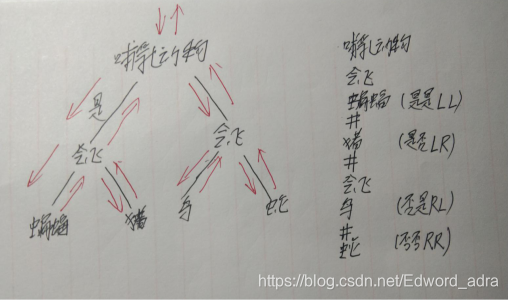 哺乳动物
是
会飞
会飞
蝙蝠
猫
鸟
蛇
哺乳动物
会飞
蝙蝠 (是是LL)
#
猫 (是否LR)
#
会飞
鸟 (否是RL)
#
蛇 (否否RR)
https://blog.csdn.net/Edword_adra